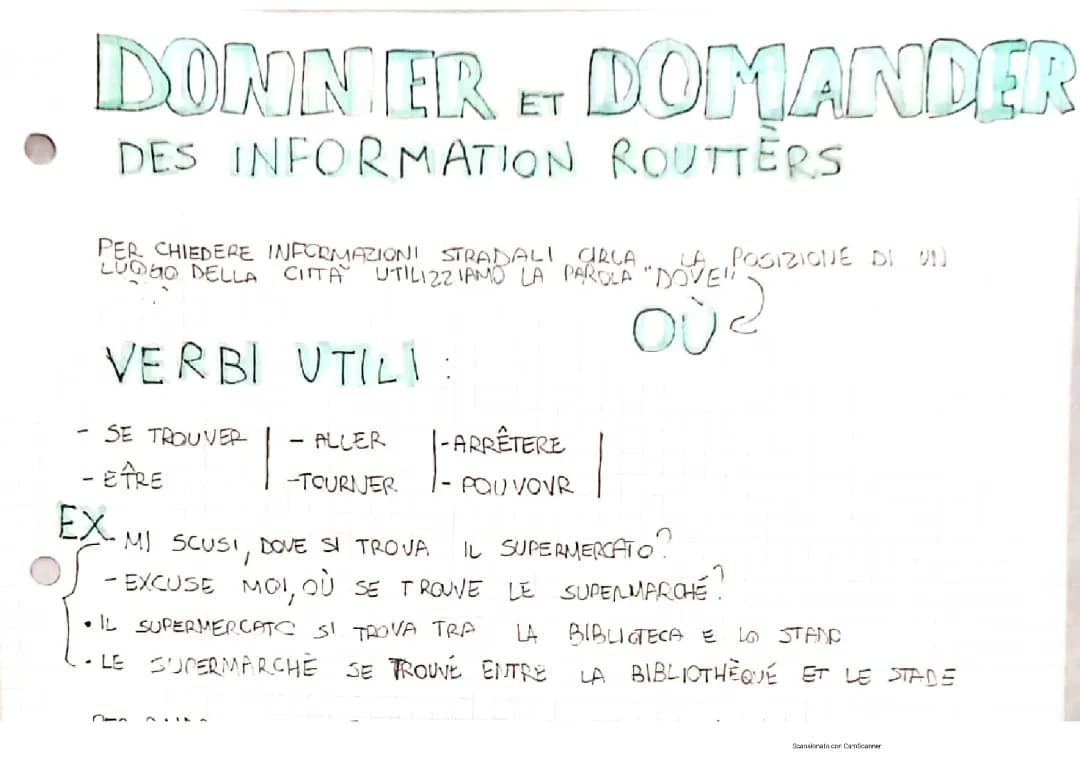 DONNER ET DOMANDER
DES INFORMATION ROUTTÈRS
PER CHIEDERE INFORMAZIONI STRADALI CIRCA LA POSIZIONE DI UN
LUOGO DELLA CITTÀ UTILIZZIAMO LA PAROLA "DOVE"
OÙ
VERBI UTILI:
- SE TROUVER - ALLER - ARRÊTERE
- EÎRE - TOURNER - POUVOVR
EX
MI SCUSI, DOVE SI TROVA IL SUPERMERCATO?
- EXCUSE MOI, OÙ SE TROUVE LE SUPERMARCHÉ?
• IL SUPERMERCATO SI TROVA TRA LA BIBLIOTECA E LO STADO
• LE SUPERMARCHÈ SE TROUVÉ ENTRE LA BIBLIOTHÈQUÉ ET LE STADE
Scansionato con CamScanner